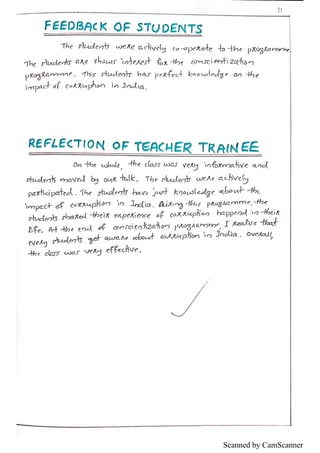 11
FEEDBACK OF STUDENTS
The students were actively co-operate to the programme.
The students are shows interest for the conscientization
programme. This students has perfect knowledge on the
impact of corruption in India.
REFLECTION OF TEACHER TRAINEE
On the whole, the class was very informative and
students moved by our talk. The students were actively
participated. The students have just knowledge about the
impact of corruption in India. During this programme, the
students shared their experience of corruption happend in their
life. At the end of conscientization programme, I realise that
every students get aware about corruption in India. Overall,
the class was very effective.
Scanned by CamScanner